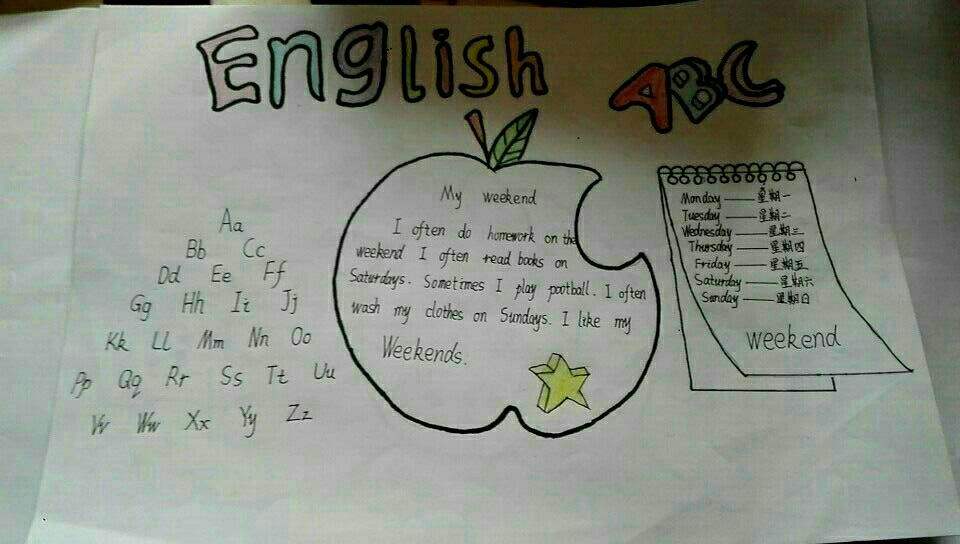 English ABC
Aa
Bb Cc
Dd Ee Ff
Gg Hh Ii Jj
Kk Ll Mm Nn Oo
Pp Qq Rr Ss Tt Uu
Vv Ww Xx Yy Zz
My weekend
I often do homework on the
weekend I often read books on
Saturdays. Sometimes I play pootball. I often
wash my clothes on Sundays. I like my
Weekends.
Monday —— 星期一
Tuesday —— 星期二
Wednesday —— 星期三
Thursday —— 星期四
Friday —— 星期五
Saturday —— 星期六
Sunday —— 星期日
weekend